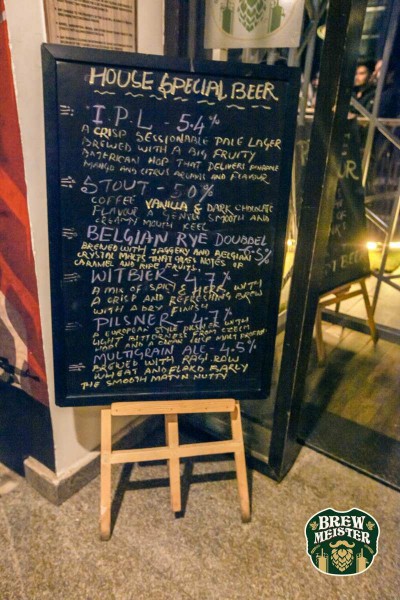 HOUSE SPECIAL BEER
I.P.L - 5.4%
A CRISP SESSIONABLE PALE LAGER
BREWED WITH A BIG FRUITY
AMERICAN HOP THAT DELIVERS
MANGO AND CITRUS AROMAS AND FLAVOUR
STOUT - 5.0%
COFFEE VANILLA & DARK CHOCOLATE
FLAVOUR A GENTLE SMOOTH AND
CREAMY MOUTH FEEL
BELGIAN RYE DOUBBEL
BREWED WITH JAGGERY AND BELGIAN 5.5%
CRYSTAL MALTS THAT GIVES NOTES OF
CARAMEL AND RIPE FRUIT.
WITBIER - 4.7%
A MIX OF SPICY HERB WITH
A CRISP AND REFRESHING BREW
WITH A DRY FINISH
PILSNER - 4.7%
A EUROPEAN STYLE PILSNER WITH
LIGHT BITTERNESS FROM CZECH
AND A CLEAN CRISP MALT
MULTIGRAIN ALE - 4.5%
BREWED WITH RAGI RAW
WHEAT AND FLAKD BARLY
THE SMOOTH NUTTY
BREW
MEISTER